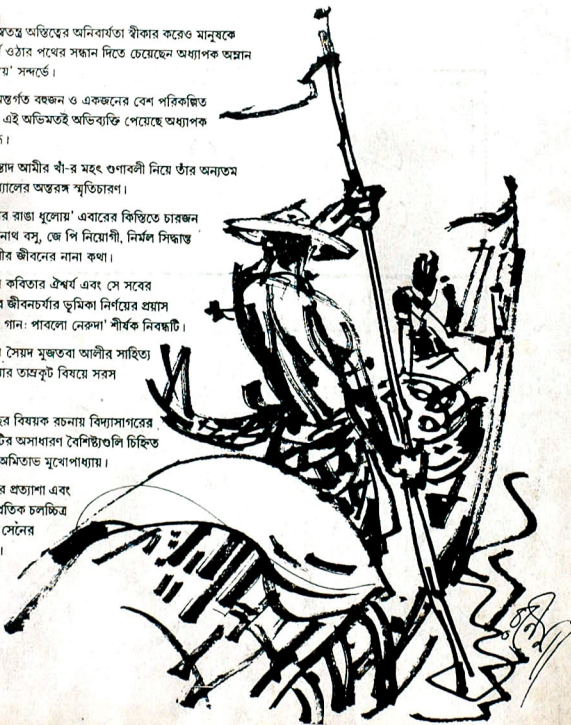 স্বতন্ত্র অস্তিত্বের অনিবার্যতা স্বীকার করেও মানুষকে
ওঠার পথের সন্ধান দিতে চেয়েছেন অধ্যাপক অম্লান
য়' সন্দর্ভে।
ন্তর্গত বহুজন ও একজনের বেশ পরিকল্পিত
এই অভিমতই অভিব্যক্তি পেয়েছে অধ্যাপক
।
স্তাদ আমীর খাঁ-র মহৎ গুণাবলী নিয়ে তাঁর অন্যতম
্যালের অন্তরঙ্গ স্মৃতিচারণ।
র রাঙা ধুলোয়' এবারের কিস্তিতে চারজন
নাথ বসু, জে পি নিয়োগী, নির্মল সিদ্ধান্ত
ীর জীবনের নানা কথা।
কবিতার ঐশ্বর্য এবং সে সবের
র জীবনচর্যার ভূমিকা নির্ণয়ের প্রয়াস
গান: পাবলো নেরুদা' শীর্ষক নিবন্ধটি।
সৈয়দ মুজতবা আলীর সাহিত্য
ার তাম্রকূট বিষয়ে সরস
হর বিষয়ক রচনায় বিদ্যাসাগরের
টির অসাধারণ বৈশিষ্ট্যগুলি চিহ্নিত
অমিতাভ মুখোপাধ্যায়।
র প্রত্যাশা এবং
প্রতিক চলচ্চিত্র
সেনের
।